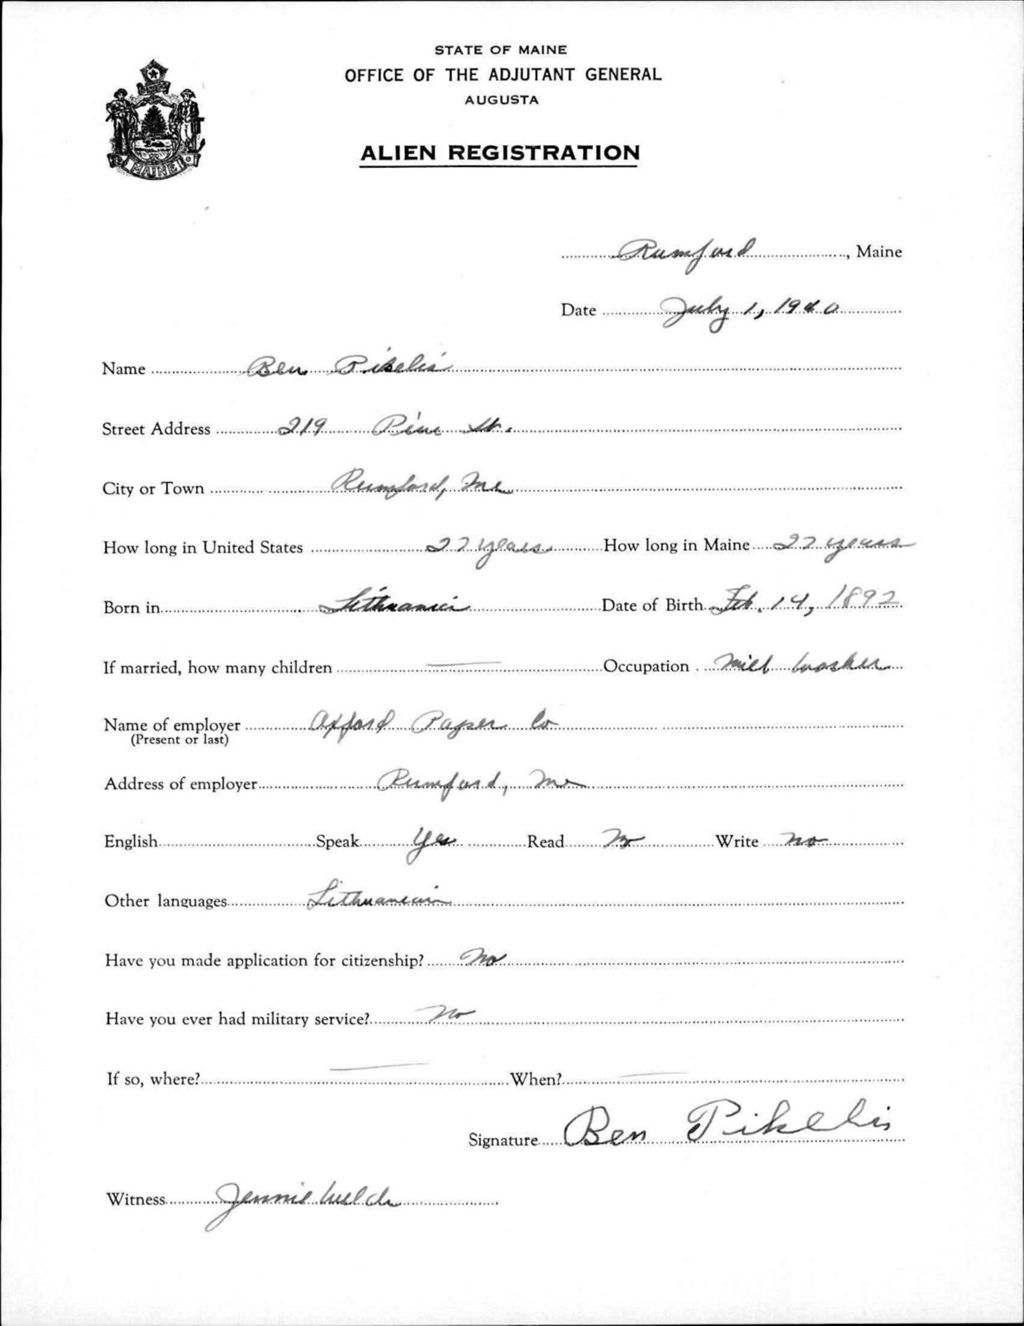 STATE OF MAINE
OFFICE OF THE ADJUTANT GENERAL
AUGUSTA
ALIEN REGISTRATION
MAINE
Rumford, Maine
Date July 1, 1940
Name Ben Pikelis
Street Address 219 Pine St.
City or Town Rumford, Me
How long in United States 27 years How long in Maine 27 years
Born in Lithuania Date of Birth Feb. 14, 1892
If married, how many children — Occupation Mill worker
Name of employer Oxford Paper Co
(Present or last)
Address of employer Rumford, Me
English Speak Yes Read No Write No
Other languages Lithuanian
Have you made application for citizenship? No
Have you ever had military service? No
If so, where? — When? —
Signature Ben Pikelis
Witness Jennie